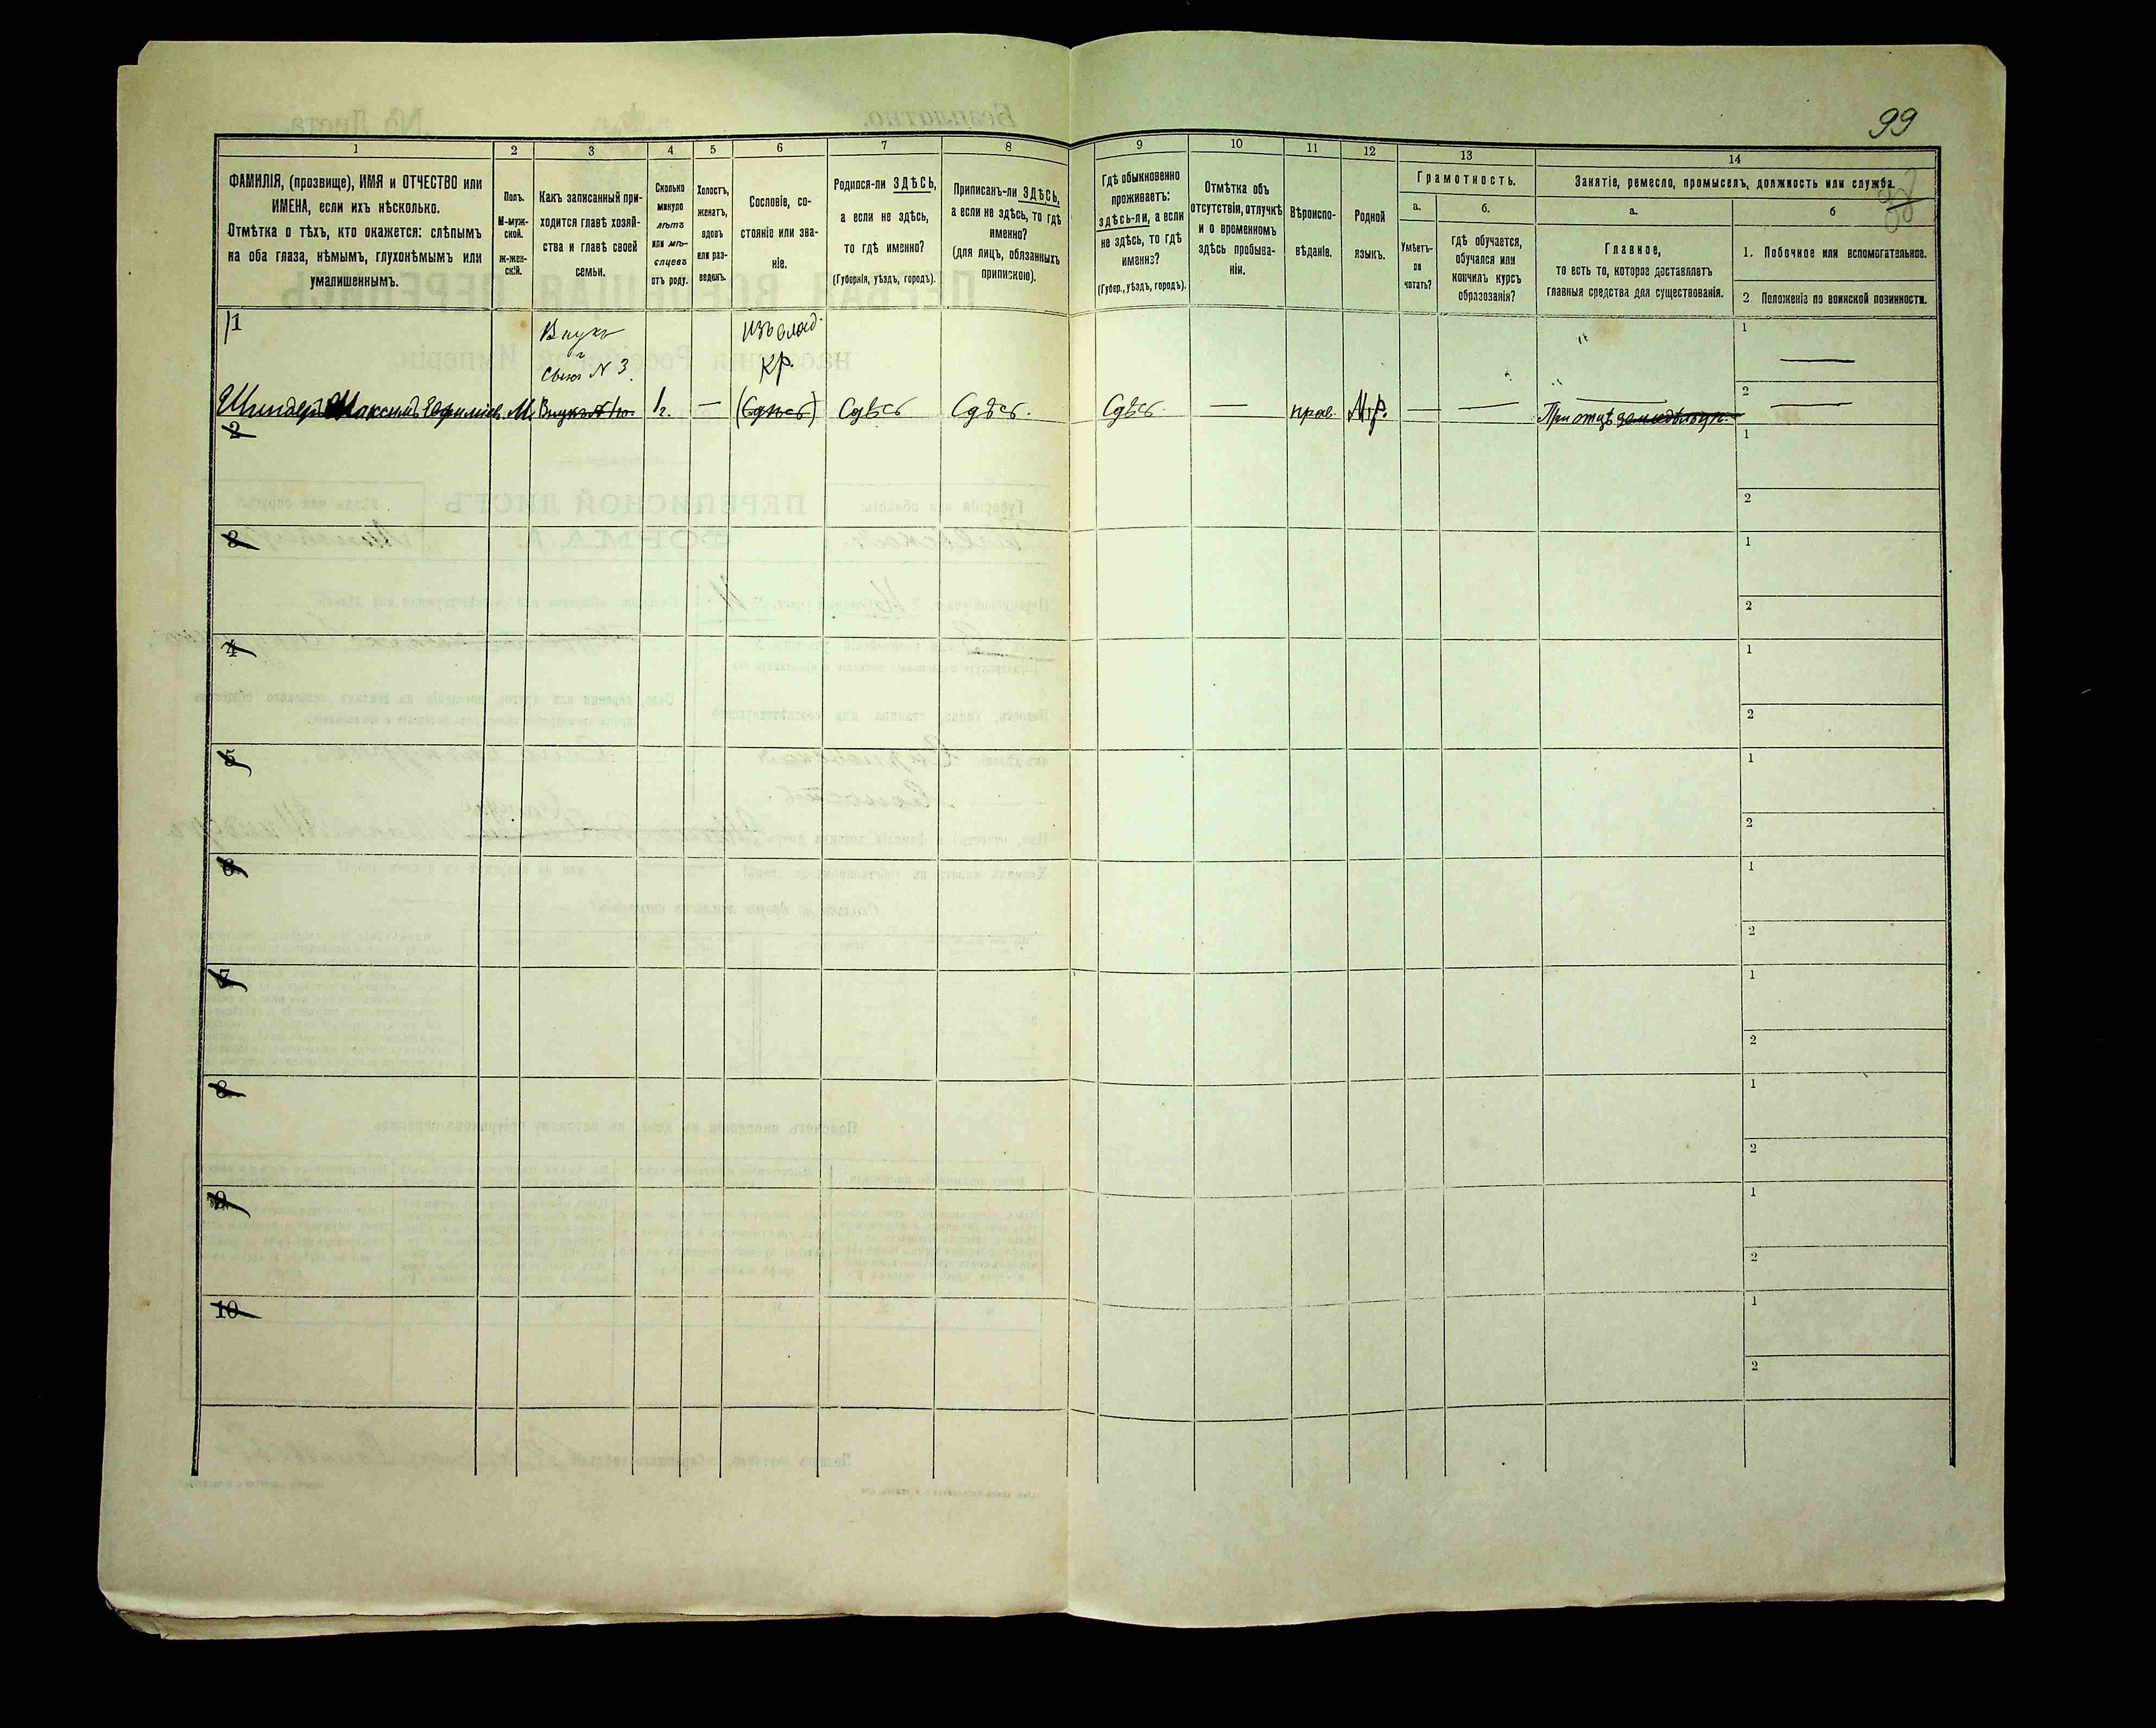 99
1 2 3 4 5 6 7 8 9 10 11 12 13 14
ФАМИЛІЯ, (прозвище), ИМЯ и ОТЧЕСТВО или
ИМЕНА, если ихъ нѣсколько.
Отмѣтка о тѣхъ, кто окажется: слѣпымъ
на оба глаза, нѣмымъ, глухонѣмымъ или
умалишеннымъ.
Полъ.
М-муж-
ской.
ж-жен-
скій.
Какъ записанный при-
ходится главѣ хозяй-
ства и главѣ своей
семьи.
Сколько
минуло
лѣтъ
или мѣ-
сяцевъ
отъ роду.
Холостъ,
женатъ,
вдовъ
или раз-
веденъ.
Сословіе, со-
стояніе или зва-
ніе.
Родился-ли ЗДѢСЬ,
а если не здѣсь,
то гдѣ именно?
(Губернія, уѣздъ, городъ).
Приписанъ-ли ЗДѢСЬ,
а если не здѣсь, то гдѣ
именно?
(для лицъ, обязанныхъ
припискою).
Гдѣ обыкновенно
проживаетъ:
здѣсь-ли, а если
не здѣсь, то гдѣ
именно?
(Губер., уѣздъ, городъ).
Отмѣтка объ
отсутствіи, отлучкѣ
и о временномъ
здѣсь пребыва-
ніи.
Вѣроиспо-
вѣданіе.
Родной
языкъ.
Грамотность.
а.
Умѣетъ-
ли
читать?
б.
гдѣ обучается,
обучался или
кончилъ курсъ
образованія?
Занятіе, ремесло, промыселъ, должность или служба.
а.
Главное,
то есть то, которое доставляетъ
главныя средства для существованія.
б
1. Побочное или вспомогательное.
2 Положеніе по воинской повинности.
1
Внукъ
Сынъ N 3.
изъ влад.
кр.
1
2
Шиндеръ Максимъ М. 1 г. — (Сдѣсь) Сдѣсь Сдѣсь. Сдѣсь. — прав. М.р. — — При отцѣ
2
1
2
3
1
2
4
1
2
5
1
2
6
1
2
7
1
2
8
1
2
9
1
2
10
1
2